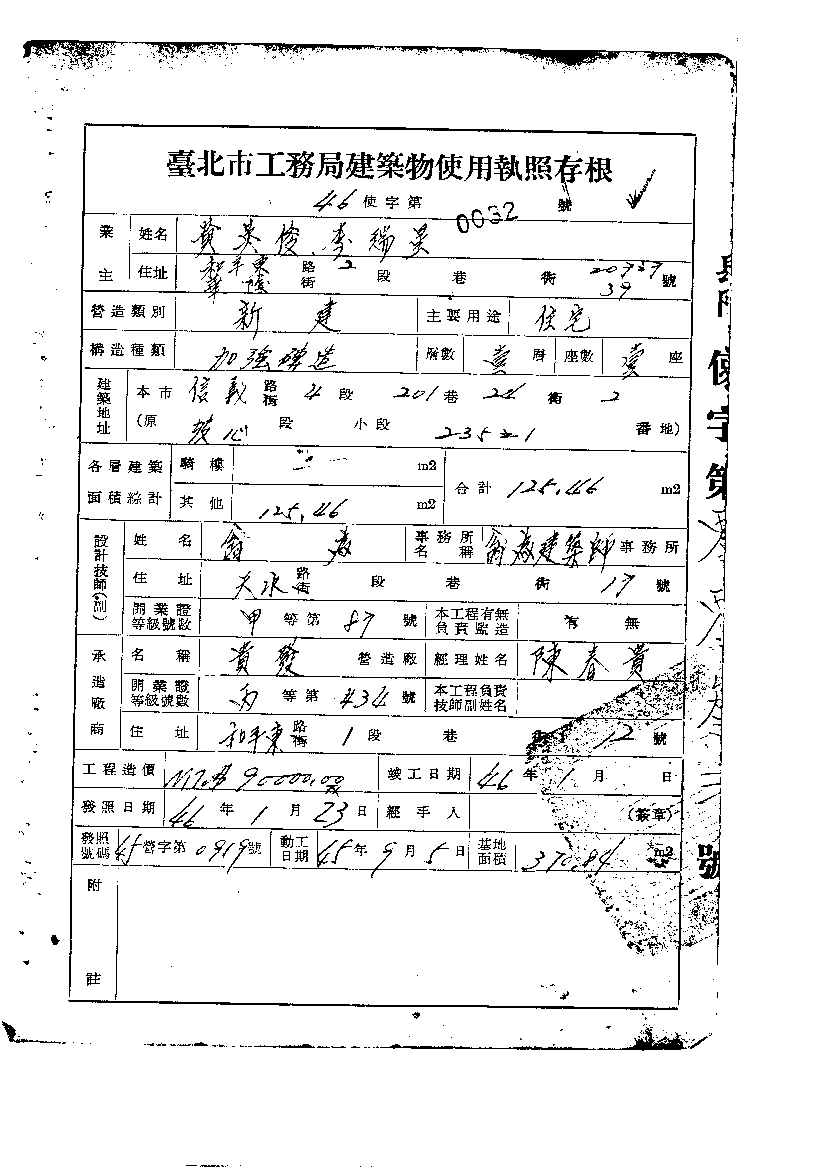 臺北市工務局建築物使用執照存根
46 使字第 0032 號
業主 姓名 黃英俊 李瑞昊
住址 和平東 路街 2 段 巷 衖 號 39
營造類別 新建 主要用途 住宅
構造種類 加強磚造 層數 壹 層 座數 壹 座
建築地址 本市 信義 路街 4 段 201 巷 24 衖 2
(原 段 小段 235-21 番地)
各層建築面積綜計 騎樓 m2 合計 125.46 m2
其他 125.46 m2
設計技師(副) 姓名 翁為 事務所名稱 翁為建築師 事務所
住址 天水 路街 段 巷 衖 17 號
開業證等級號數 甲 等第 87 號 本工程有無負責監造 有 無
承造廠商 名稱 貴發 營造廠 經理姓名 陳春貴
開業證等級號數 丙 等第 434 號 本工程負責技師副姓名
住址 和平東 路街 1 段 巷 12 號
工程造價 90000.00 竣工日期 46 年 1 月 日
發照日期 46 年 1 月 23 日 經手人 (簽章)
發照號碼 45 營字第 0919 號 動工日期 45 年 9 月 5 日 基地面積 370.84 m2
附註
字第
號